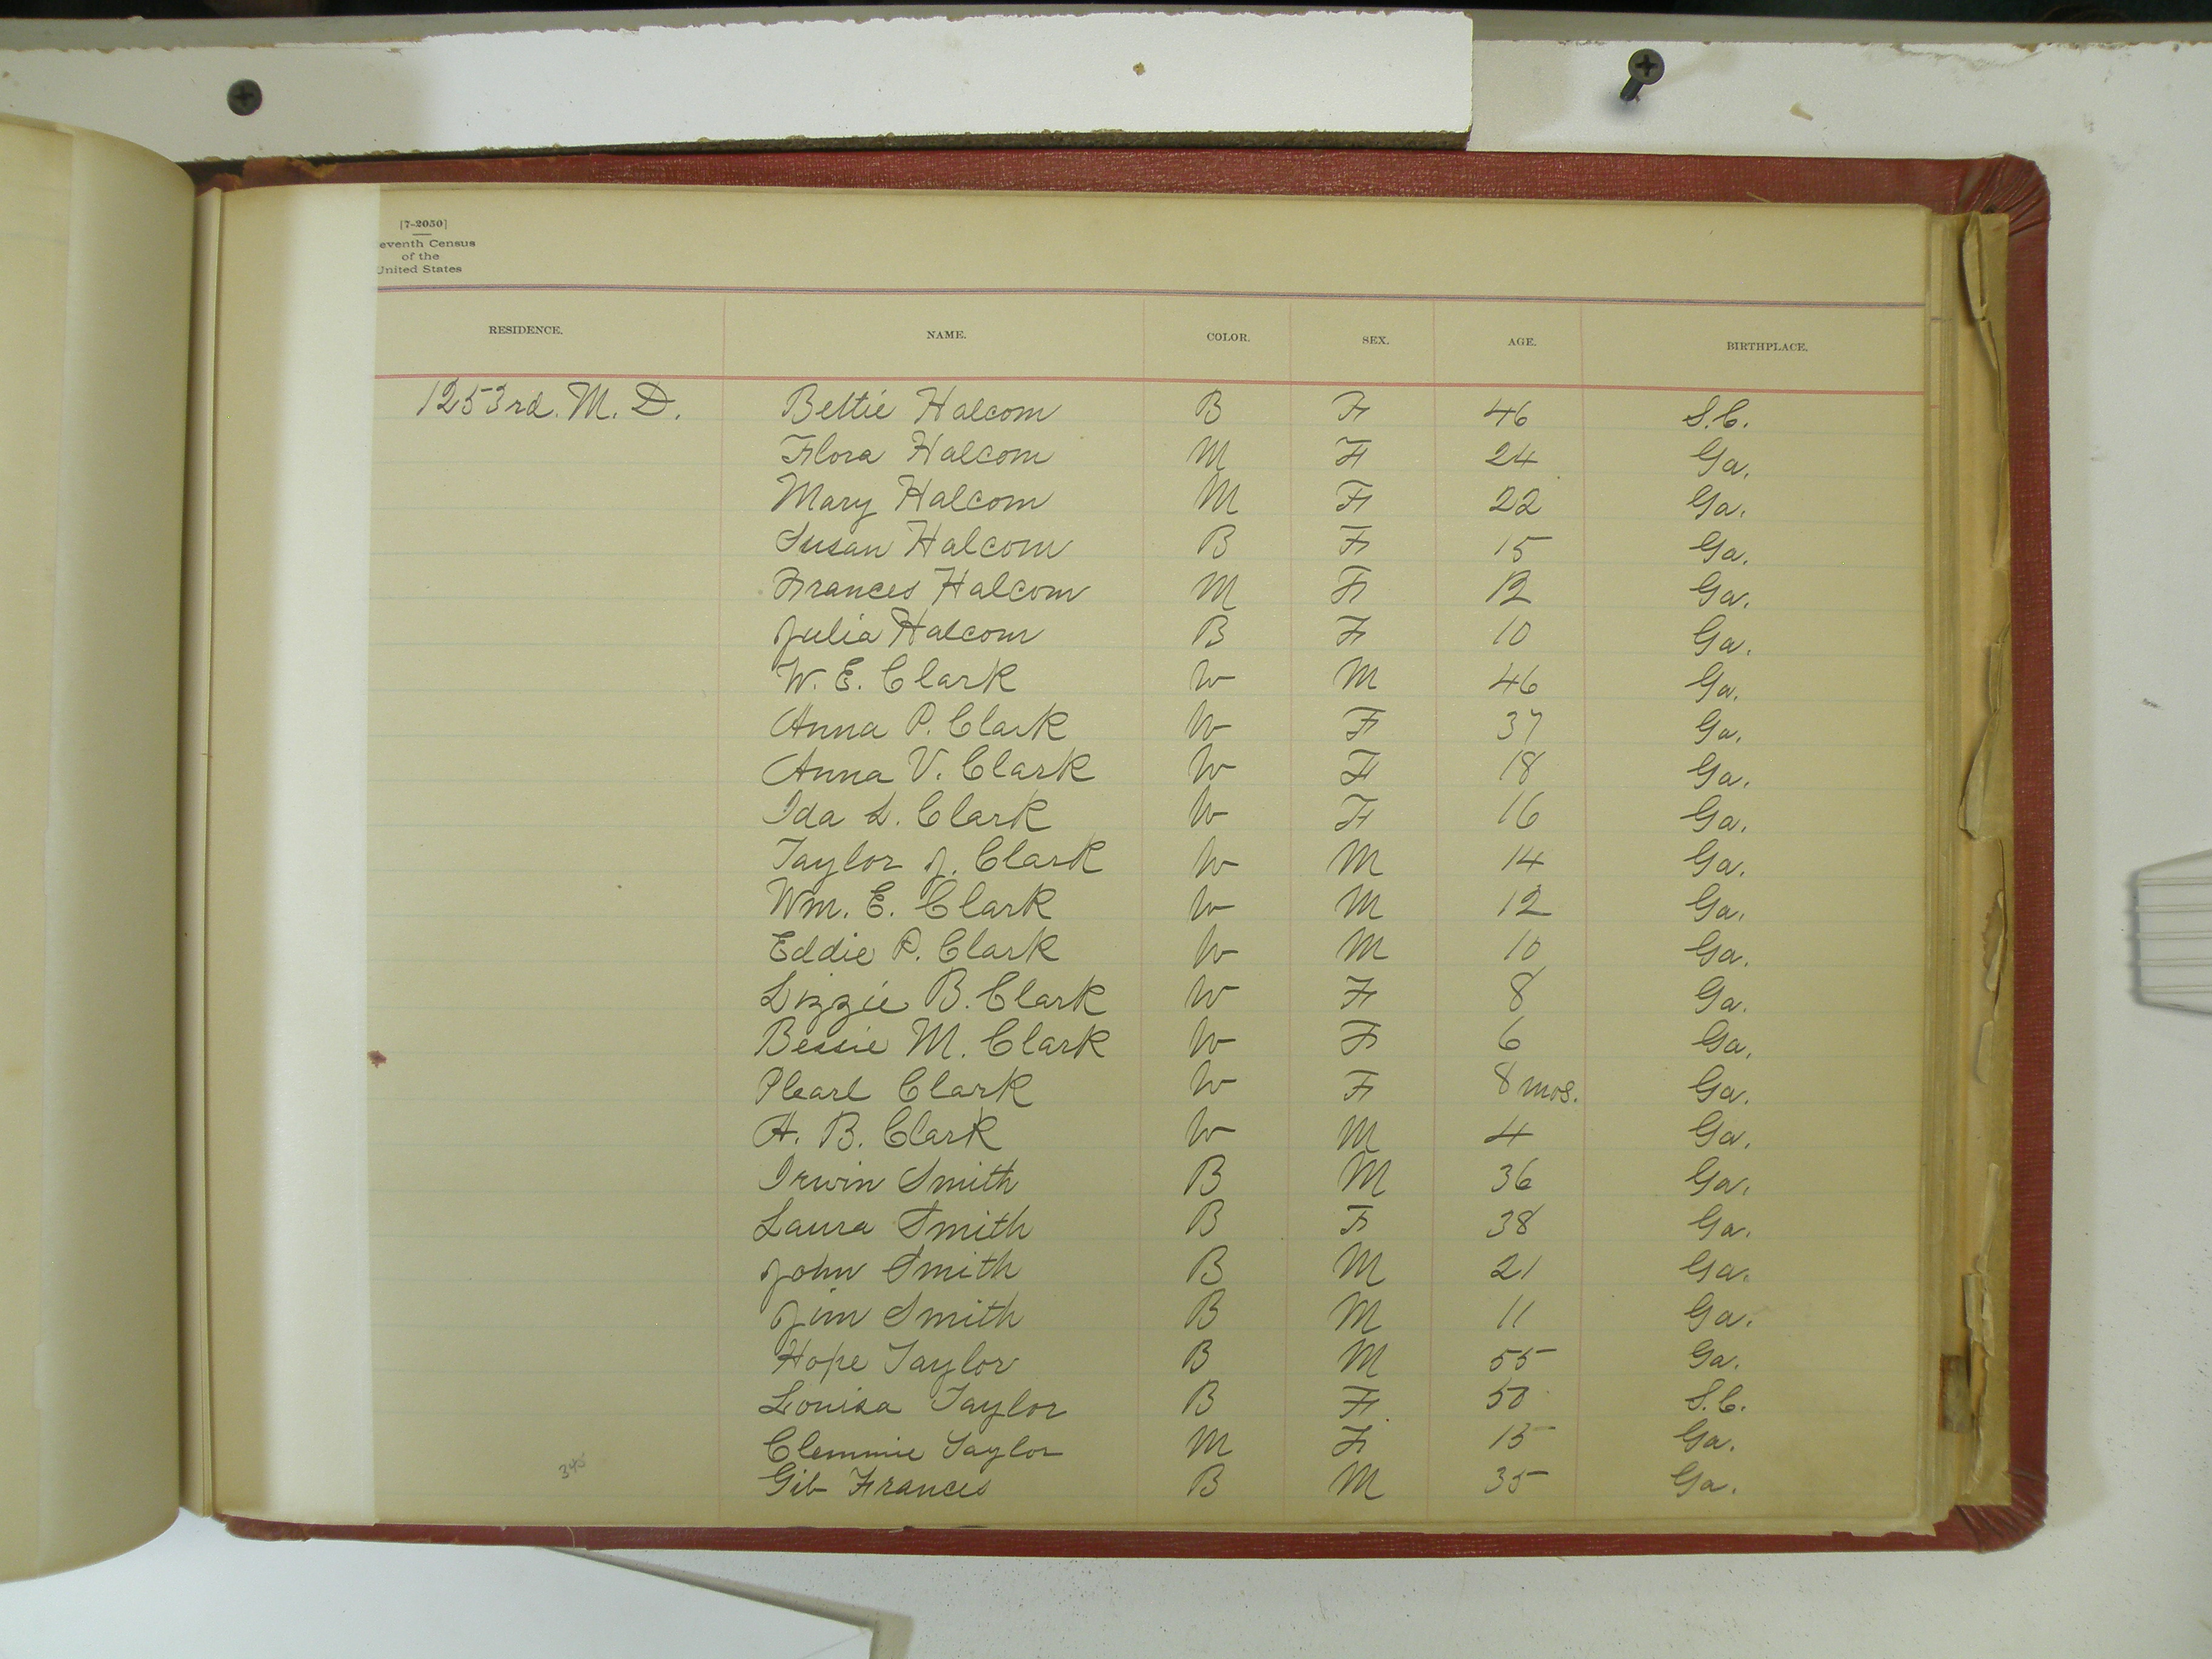 [7-2050]
eventh Census
of the
United States
RESIDENCE. NAME. COLOR. SEX. AGE. BIRTHPLACE.
1253rd. M. D. Bettie Halcom B F 46 S.C.
Flora Halcom M F 24 Ga.
Mary Halcom M F 22 Ga.
Susan Halcom B F 15 Ga.
Frances Halcom M F 12 Ga.
Julia Halcom B F 10 Ga.
W. E. Clark W M 46 Ga.
Anna P. Clark W F 37 Ga.
Anna V. Clark W F 18 Ga.
Ida L. Clark W F 16 Ga.
Taylor J. Clark W M 14 Ga.
Wm. E. Clark W M 12 Ga.
Eddie P. Clark W M 10 Ga.
Lizzie B. Clark W F 8 Ga.
Bessie M. Clark W F 6 Ga.
Plearl Clark W F 8 mos. Ga.
A. B. Clark W M 4 Ga.
Irwin Smith B M 36 Ga.
Laura Smith B F 38 Ga.
John Smith B M 21 Ga.
Jim Smith B M 11 Ga.
Hope Taylor B M 55 Ga.
Louisa Taylor B F 50 S.C.
Clemmie Taylor M F 15 Ga.
Gib Frances B M 35 Ga.
345